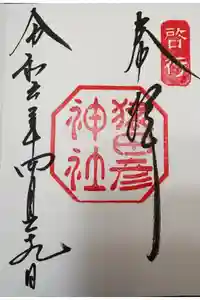 奉拝
猿田彦
神社
令和六年四月二十九日